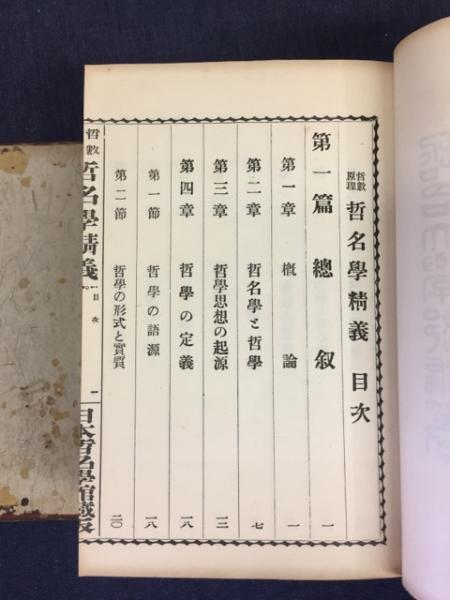 哲數原理 哲名學精義 目次
第一篇 總敘 一
第一章 槪論 一
第二章 哲名學と哲學 七
第三章 哲學思想の起源 一三
第四章 哲學の定義 一八
第一節 哲學の語源 一八
第二節 哲學の形式と實質 二〇
哲數 哲名學精義 目次 一 日本哲名學館藏版